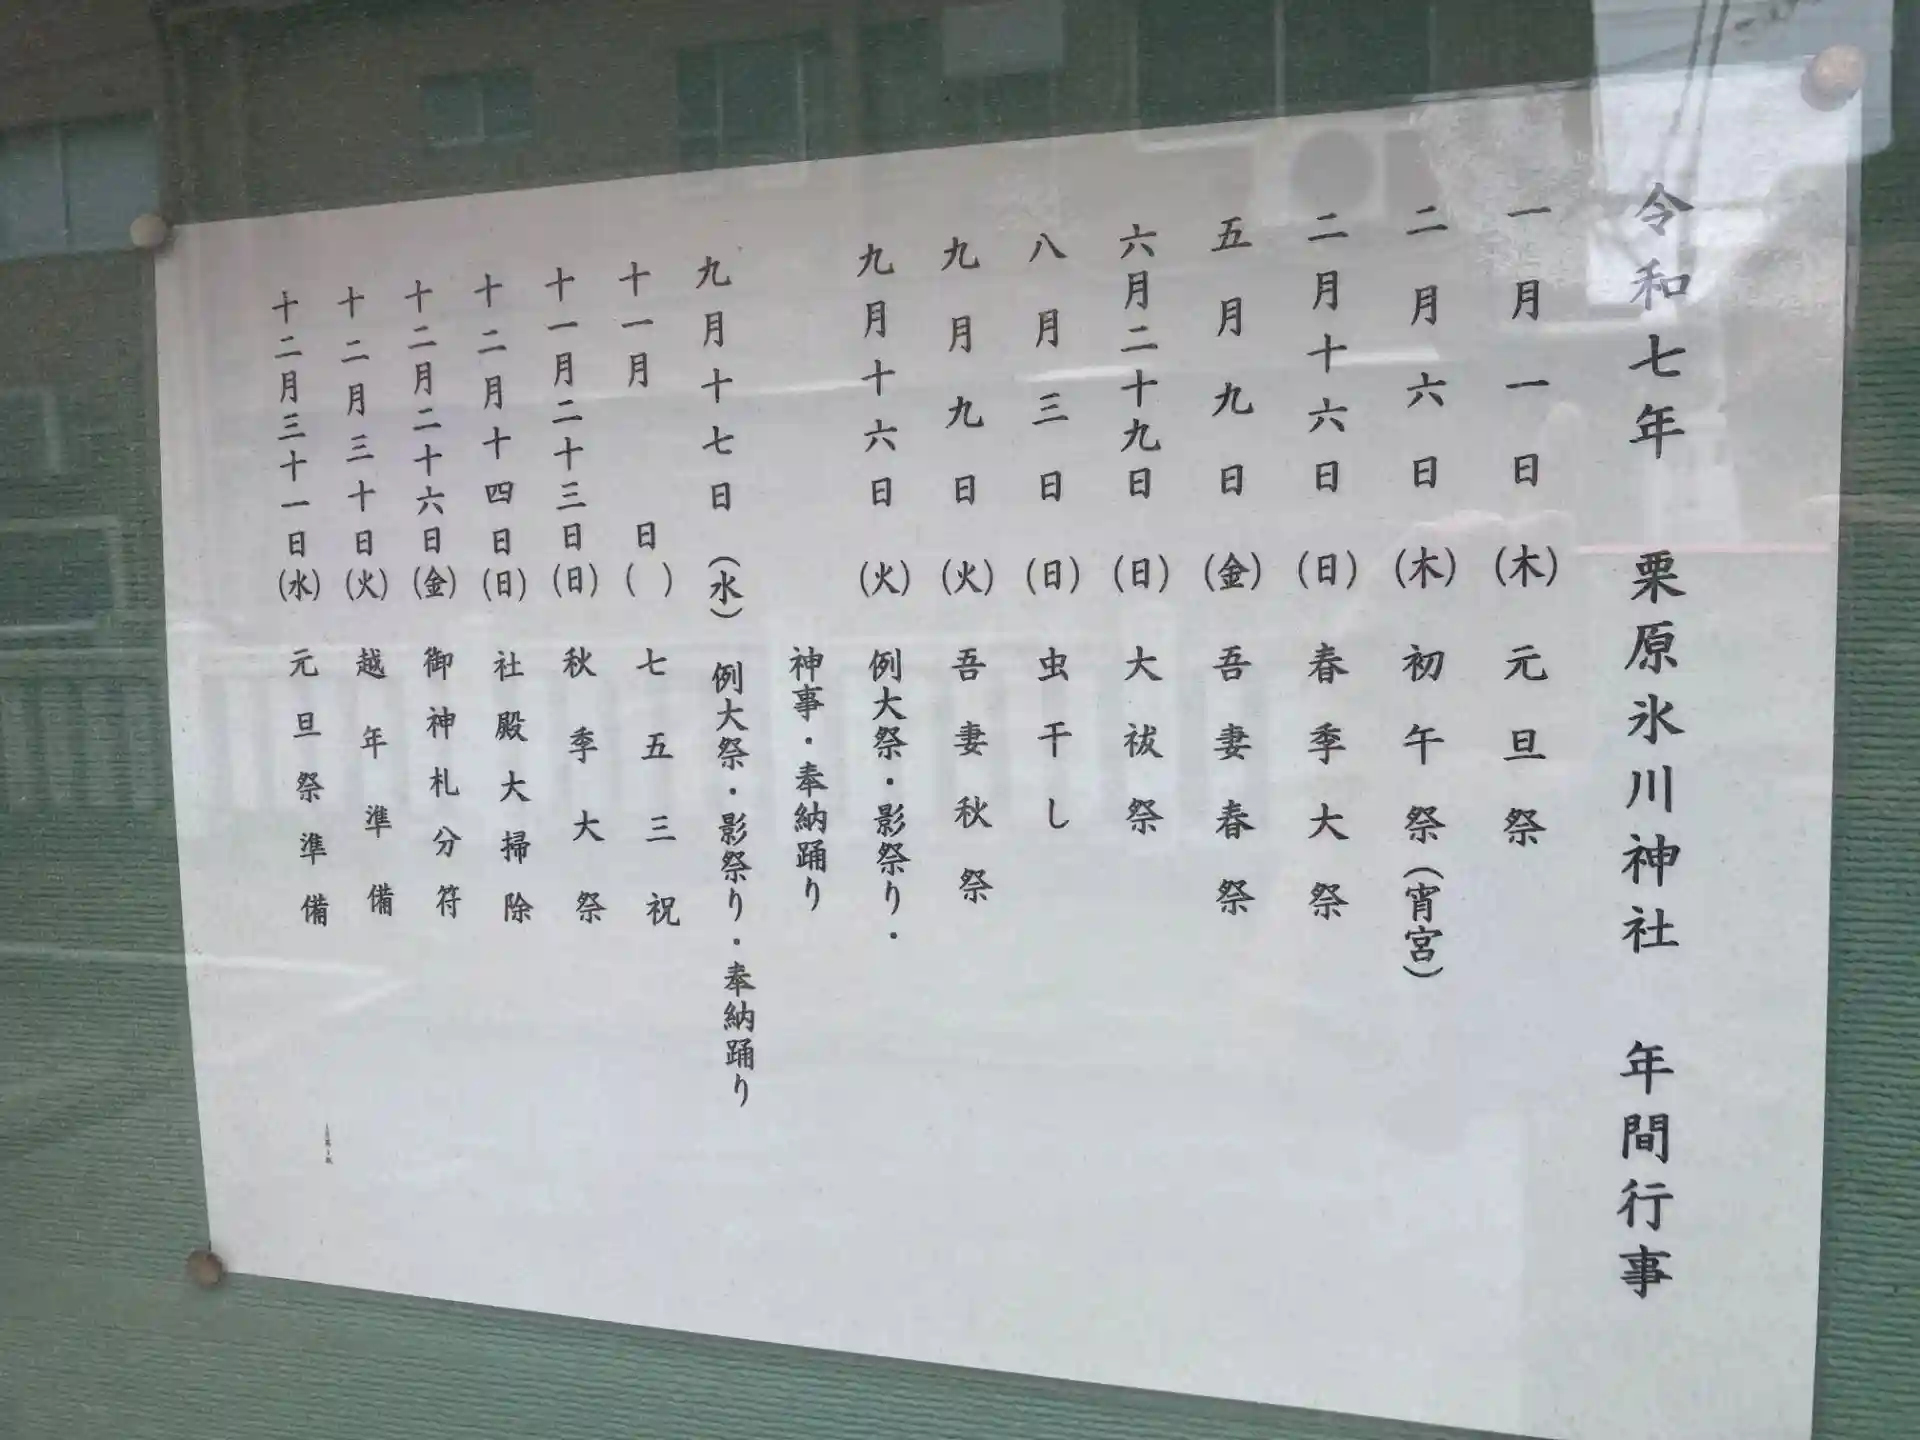 令和七年 栗原氷川神社 年間行事
一月一日(木) 元旦祭
二月六日(木) 初午祭(宵宮)
二月十六日(日) 春季大祭
五月九日(金) 吾妻春祭
六月二十九日(日) 大祓祭
八月三日(日) 虫干し
九月九日(火) 吾妻秋祭
九月十六日(火) 例大祭・影祭り・
神事・奉納踊り
九月十七日(水) 例大祭・影祭り・奉納踊り
十一月 日( ) 七五三祝
十一月二十三日(日) 秋季大祭
十二月十四日(日) 社殿大掃除
十二月二十六日(金) 御神札分符
十二月三十日(火) 越年準備
十二月三十一日(水) 元旦祭準備